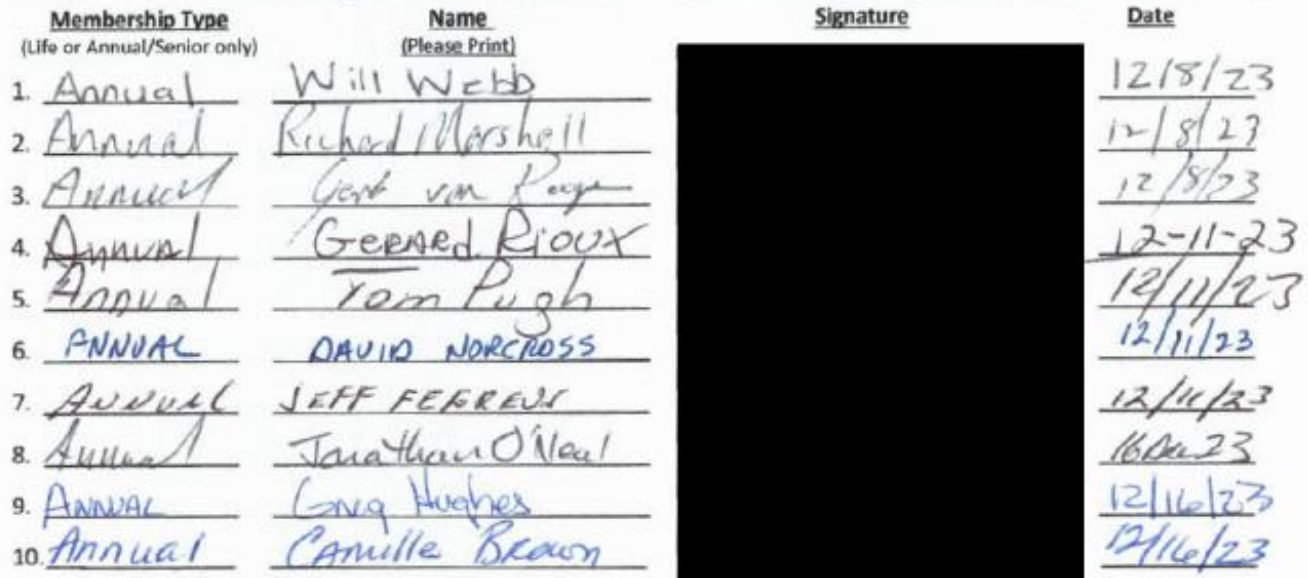 Membership Type Name Signature Date
(Life or Annual/Senior only) (Please Print)
1. Annual Will Webb 12/8/23
2. Annual Richard Marshall 12/8/23
3. Annual van 12/8/23
4. Annual GERARd RiOUX 12-11-23
5. Annual Tom Pugh 12/11/23
6. ANNUAL DAVID NORCROSS 12/11/23
7. ANNUAL JEFF 12/11/23
8. Annual Jonathan O'Neal 16 Dec 23
9. ANNUAL Greg Hughes 12/16/23
10. Annual CAmille BROWN 12/16/23